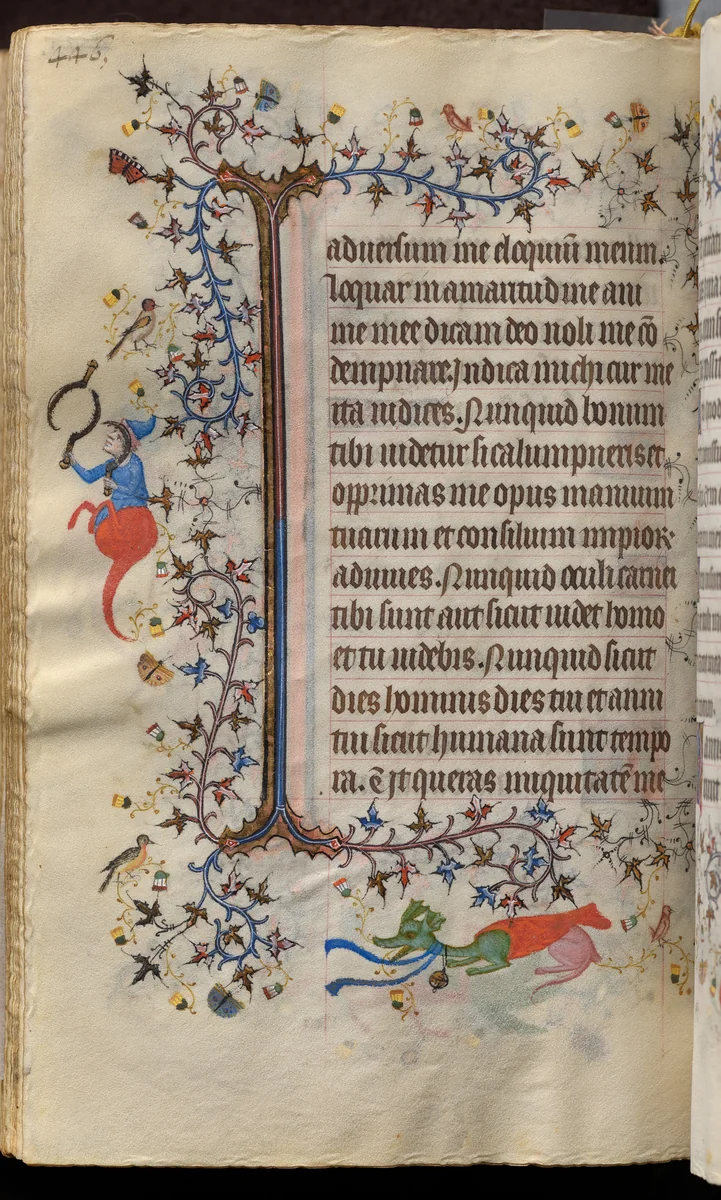 446.
aduersum me eloquiũ meum.
loquar in amaritudine ani
me mee dicam deo noli me cõ
dempnare. Indica michi cur me
ita iudices. Nunquid bonum
tibi uidetur si calumpnieris et
opprimas me opus manuum
tuarum et consilium impior
adiuues. Nunquid oculi carnei
tibi sunt aut sicut uidet homo
et tu uidebis. Nunquid sicut
dies hominis dies tui et anni
tui sicut humana sunt tempo
ra. Et queras iniquitatẽ me